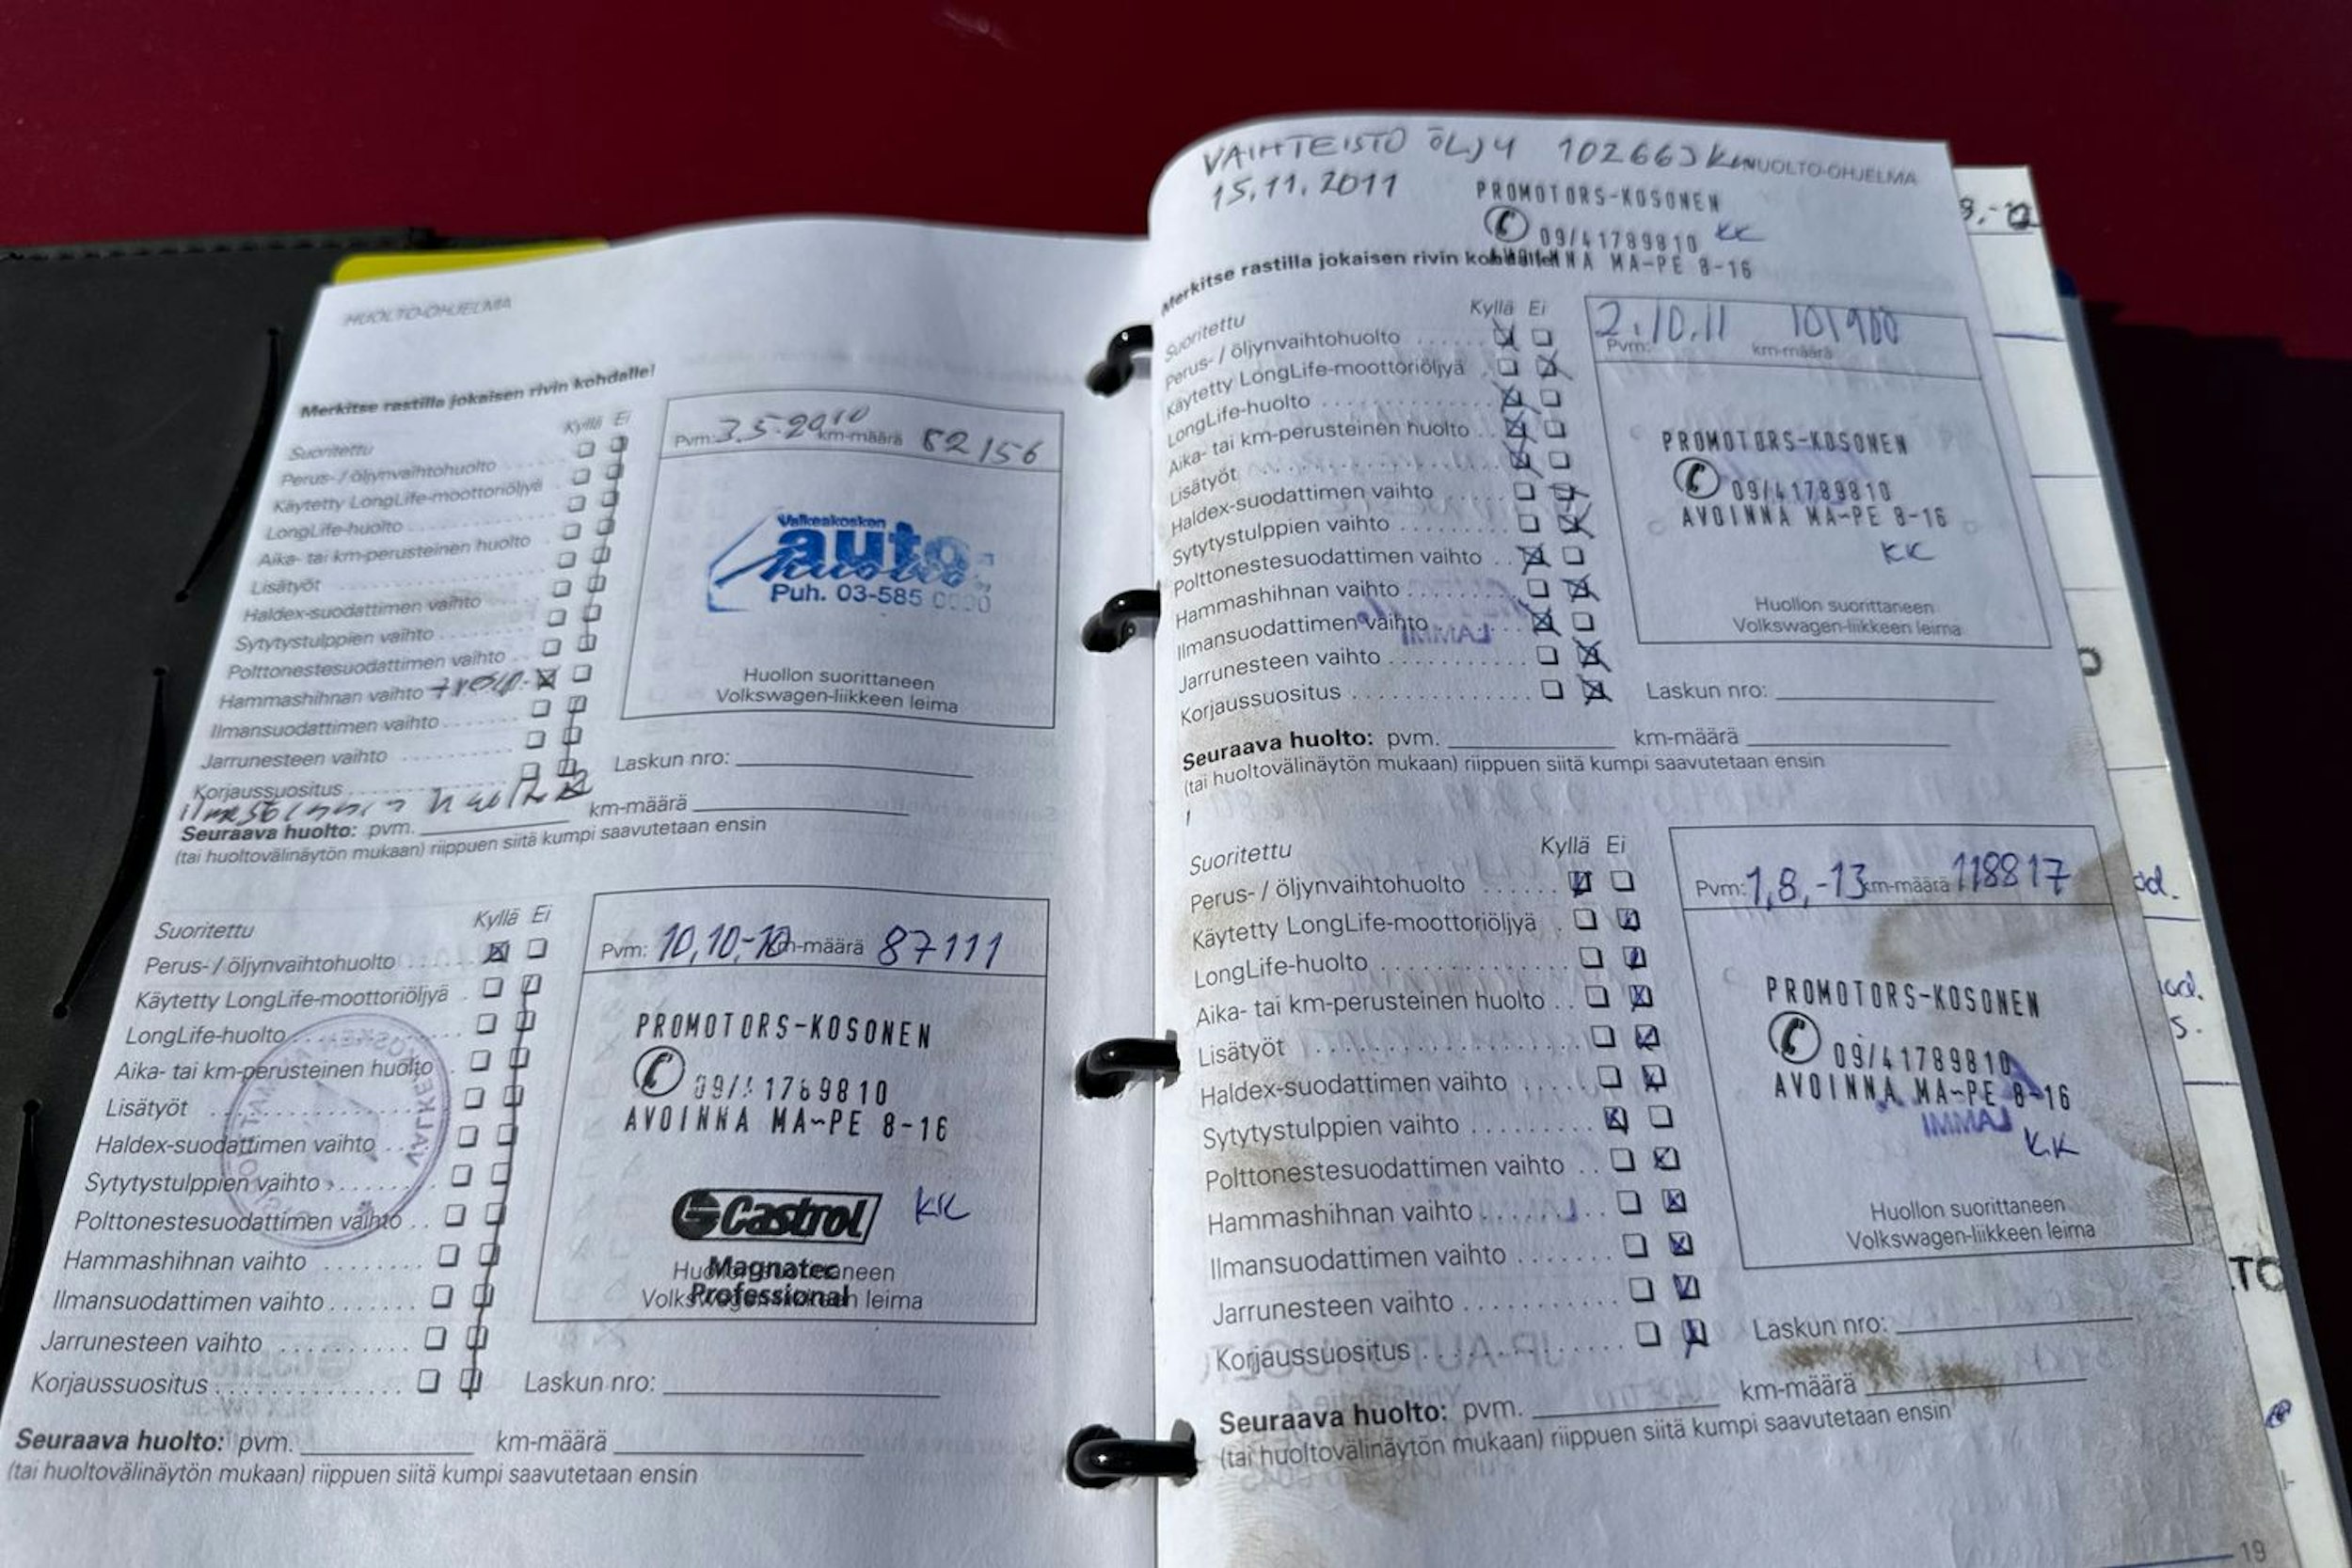 HUOLTO-OHJELMA
Merkitse rastilla jokaisen rivin kohdalle!
Suoritettu Kyllä Ei
Perus- / öljynvaihtohuolto
Käytetty LongLife-moottoriöljyä
LongLife-huolto
Aika- tai km-perusteinen huolto
Lisätyöt
Haldex-suodattimen vaihto
Sytytystulppien vaihto
Polttonestesuodattimen vaihto
Hammashihnan vaihto
Ilmansuodattimen vaihto
Jarrunesteen vaihto
Korjaussuositus
Pvm: 3.5-2010 km-määrä 82156
Valkeakosken
auto
huolto
Puh. 03-585
Huollon suorittaneen
Volkswagen-liikkeen leima
Laskun nro:
Seuraava huolto: pvm. km-määrä
(tai huoltovälinäytön mukaan) riippuen siitä kumpi saavutetaan ensin
Suoritettu Kyllä Ei
Perus- / öljynvaihtohuolto
Käytetty LongLife-moottoriöljyä
LongLife-huolto
Aika- tai km-perusteinen huolto
Lisätyöt
Haldex-suodattimen vaihto
Sytytystulppien vaihto
Polttonestesuodattimen vaihto
Hammashihnan vaihto
Ilmansuodattimen vaihto
Jarrunesteen vaihto
Korjaussuositus
Pvm: 10,10-10 km-määrä 87111
PROMOTORS-KOSONEN
09/41789810
AVOINNA MA-PE 8-16
Castrol KK
Magnatec
Professional
Huollon suorittaneen
Volkswagen-liikkeen leima
Laskun nro:
Seuraava huolto: pvm. km-määrä
(tai huoltovälinäytön mukaan) riippuen siitä kumpi saavutetaan ensin
VAIHTEISTO ÖLJY 102663 km
HUOLTO-OHJELMA
15.11.2011
PROMOTORS-KOSONEN
09/41789810 KK
AVOINNA MA-PE 8-16
Merkitse rastilla jokaisen rivin kohdalle!
Suoritettu Kyllä Ei
Perus- / öljynvaihtohuolto
Käytetty LongLife-moottoriöljyä
LongLife-huolto
Aika- tai km-perusteinen huolto
Lisätyöt
Haldex-suodattimen vaihto
Sytytystulppien vaihto
Polttonestesuodattimen vaihto
Hammashihnan vaihto
Ilmansuodattimen vaihto
Jarrunesteen vaihto
Korjaussuositus
2.10.11 101900
Pvm: km-määrä
PROMOTORS-KOSONEN
09/41789810
AVOINNA MA-PE 8-16
KK
Huollon suorittaneen
Volkswagen-liikkeen leima
Laskun nro:
Seuraava huolto: pvm. km-määrä
(tai huoltovälinäytön mukaan) riippuen siitä kumpi saavutetaan ensin
Suoritettu Kyllä Ei
Perus- / öljynvaihtohuolto
Käytetty LongLife-moottoriöljyä
LongLife-huolto
Aika- tai km-perusteinen huolto
Lisätyöt
Haldex-suodattimen vaihto
Sytytystulppien vaihto
Polttonestesuodattimen vaihto
Hammashihnan vaihto
Ilmansuodattimen vaihto
Jarrunesteen vaihto
Korjaussuositus
Pvm: 1,8,-13 km-määrä 118817
PROMOTORS-KOSONEN
09/41789810
AVOINNA MA-PE 8-16
LAMMI
KK
Huollon suorittaneen
Volkswagen-liikkeen leima
Laskun nro:
Seuraava huolto: pvm. km-määrä
(tai huoltovälinäytön mukaan) riippuen siitä kumpi saavutetaan ensin
19